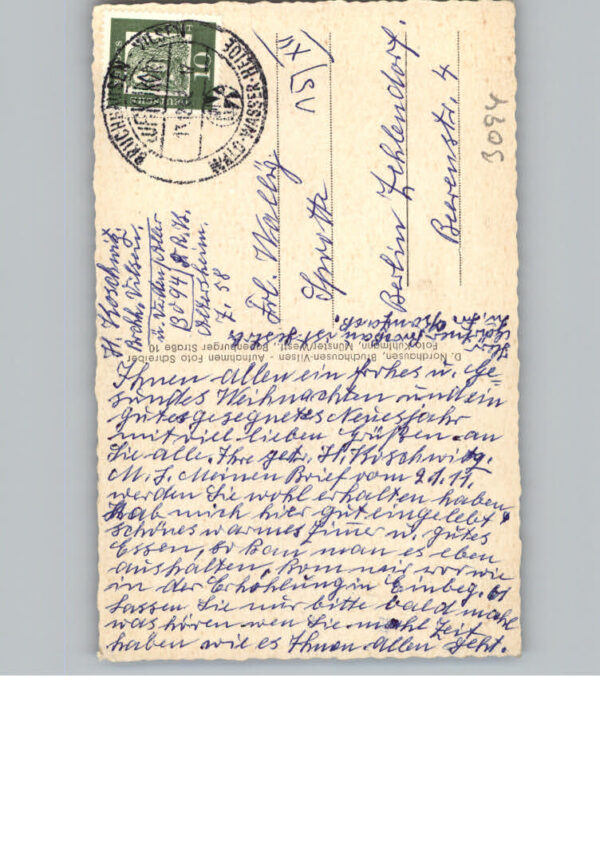 BRUCHHAUSEN - VILSEN
LUFTKURORT
10
15/XII
3094
H. Koschwitz
Bruchh. Vilsen.
Altersheim.
Z. 58
Frl. Wally
Berlin Zehlendorf.
Beerenstr. 4
D. Nordhausen, Bruchhausen-Vilsen - Aufnahmen Foto Schreiber
Foto-Kühlmann, Münster/Westf.
Ihnen allen ein Frohes u. Ge-
sundes Weihnachten und ein
gutes gesegnetes Neuesjahr
mit viel lieben Grüßen an
Sie alle. Ihre getr. H. Koschwitz.
Meinen Brief vom 21.11.
werden Sie wohl erhalten haben,
Hab mich hier gut eingelebt
schönes warmes Zimmer u. gutes
Essen, so kan man es eben
aushalten, kom mir vor wie
in der Erhohlung in
Lassen Sie nur bitte bald mahl
was hören wen Sie mahl Zeit
haben wie es Ihnen allen geht.